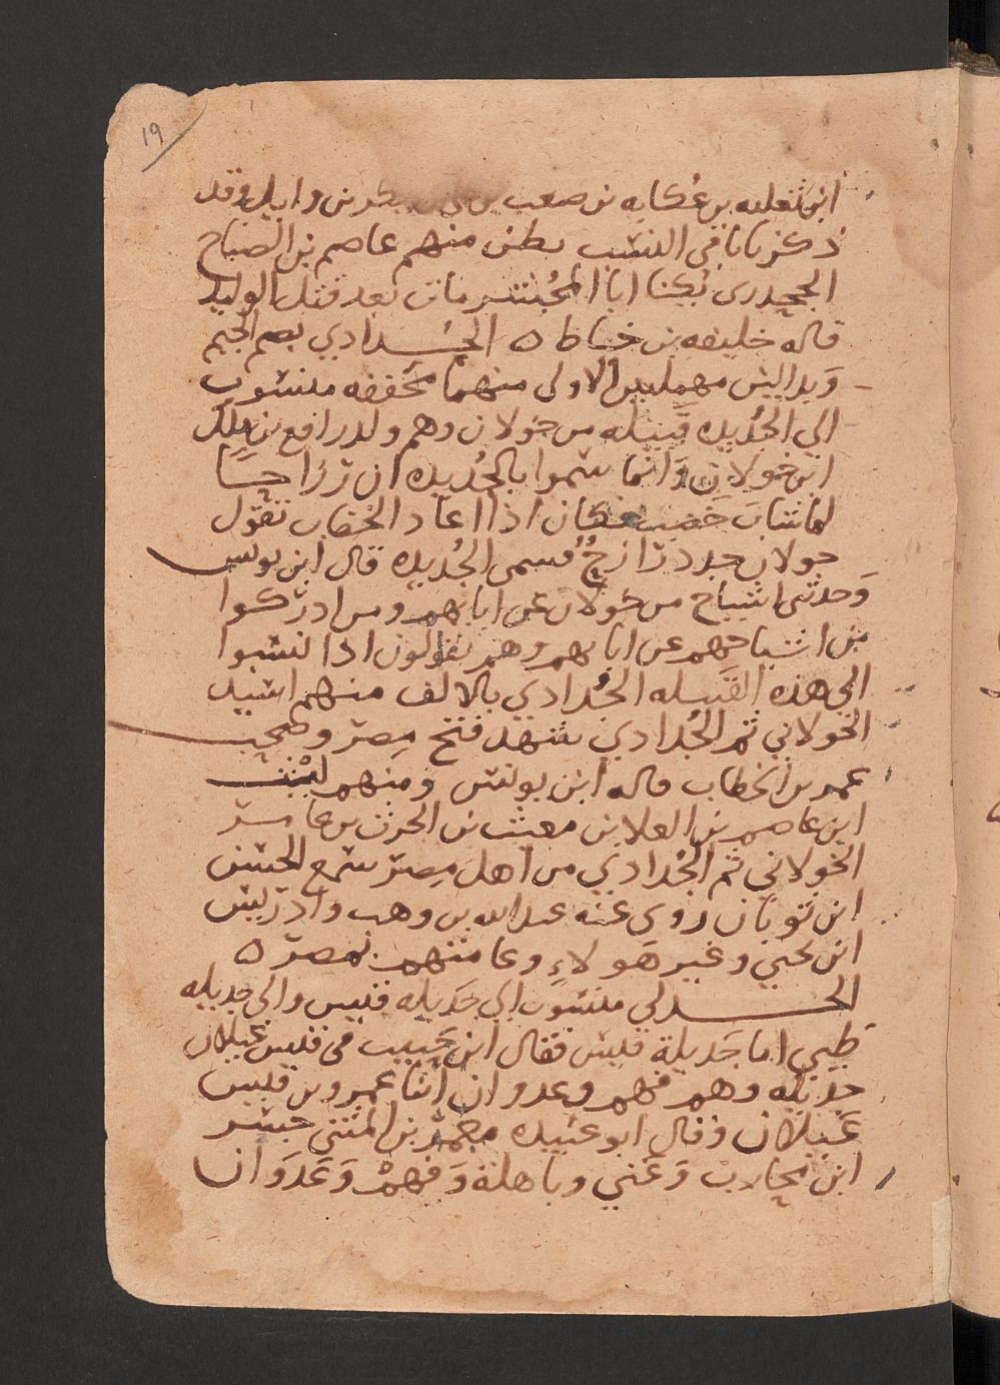 19
ابن ثعلبه بن عُكابه بن صعب بن علي بن بكر بن وايل وقد
ذكرنا نا في النسب بطن منهم عاصم بن الصباح
الجحدري يُكنا ابا المُجشر مات بعد قتل الوليد
قاله خليفه بن خياط ه الجُدادي بضم الجيم
وبدالين مهملتين الاولى منهما مخففه منسوب
الي الجُديده قَبيله من خولان وهم ولد رافع بن ملك
ابن خولان وَانما سموا بالجُديده ان رزاحا
لما شابَ خضب فكان اذا اعاد الخضاب تقول
خولان جدد رزازحٌ فسمى الجُديده قال ابن يونس
وَحدثني اشياخ من خولان عن ابايهم ومن ادركوا
من اشياخهم عن ابايهم وهم يقولون اذا نسبوا
الي هذه القبيله الجُدادي بالالف منهم اشيل
الخولاني ثم الجُدادي شهد فتح مِصر وصحب
عمر بن الخطاب قاله ابن يونس وَمنهم ليْث
ابن عاصم بن العلا بن مغيث بن الحرث بن عامر
الخولاني ثم الجُدادي من اهل مِصر سمع الحسن
ابن ثوبان روى عَنه عبد الله بن وهب وادريس
ابن يحيي وغير هَولاءِ وعامتهم بمصر ه
الجدلي منسوب الي جَديله قيس والي جديله
طَيي اما جَديلة قيس فقال ابن حَبيب في قيس عيلان
جديله وهم فهم وعدوان ابنا عمرو بن قيس
عَيلان وقال ابو عبيده معمر بن المثني جسر
ابن محارب وَغني وباهلة وَفهمْ وَعَدوَان